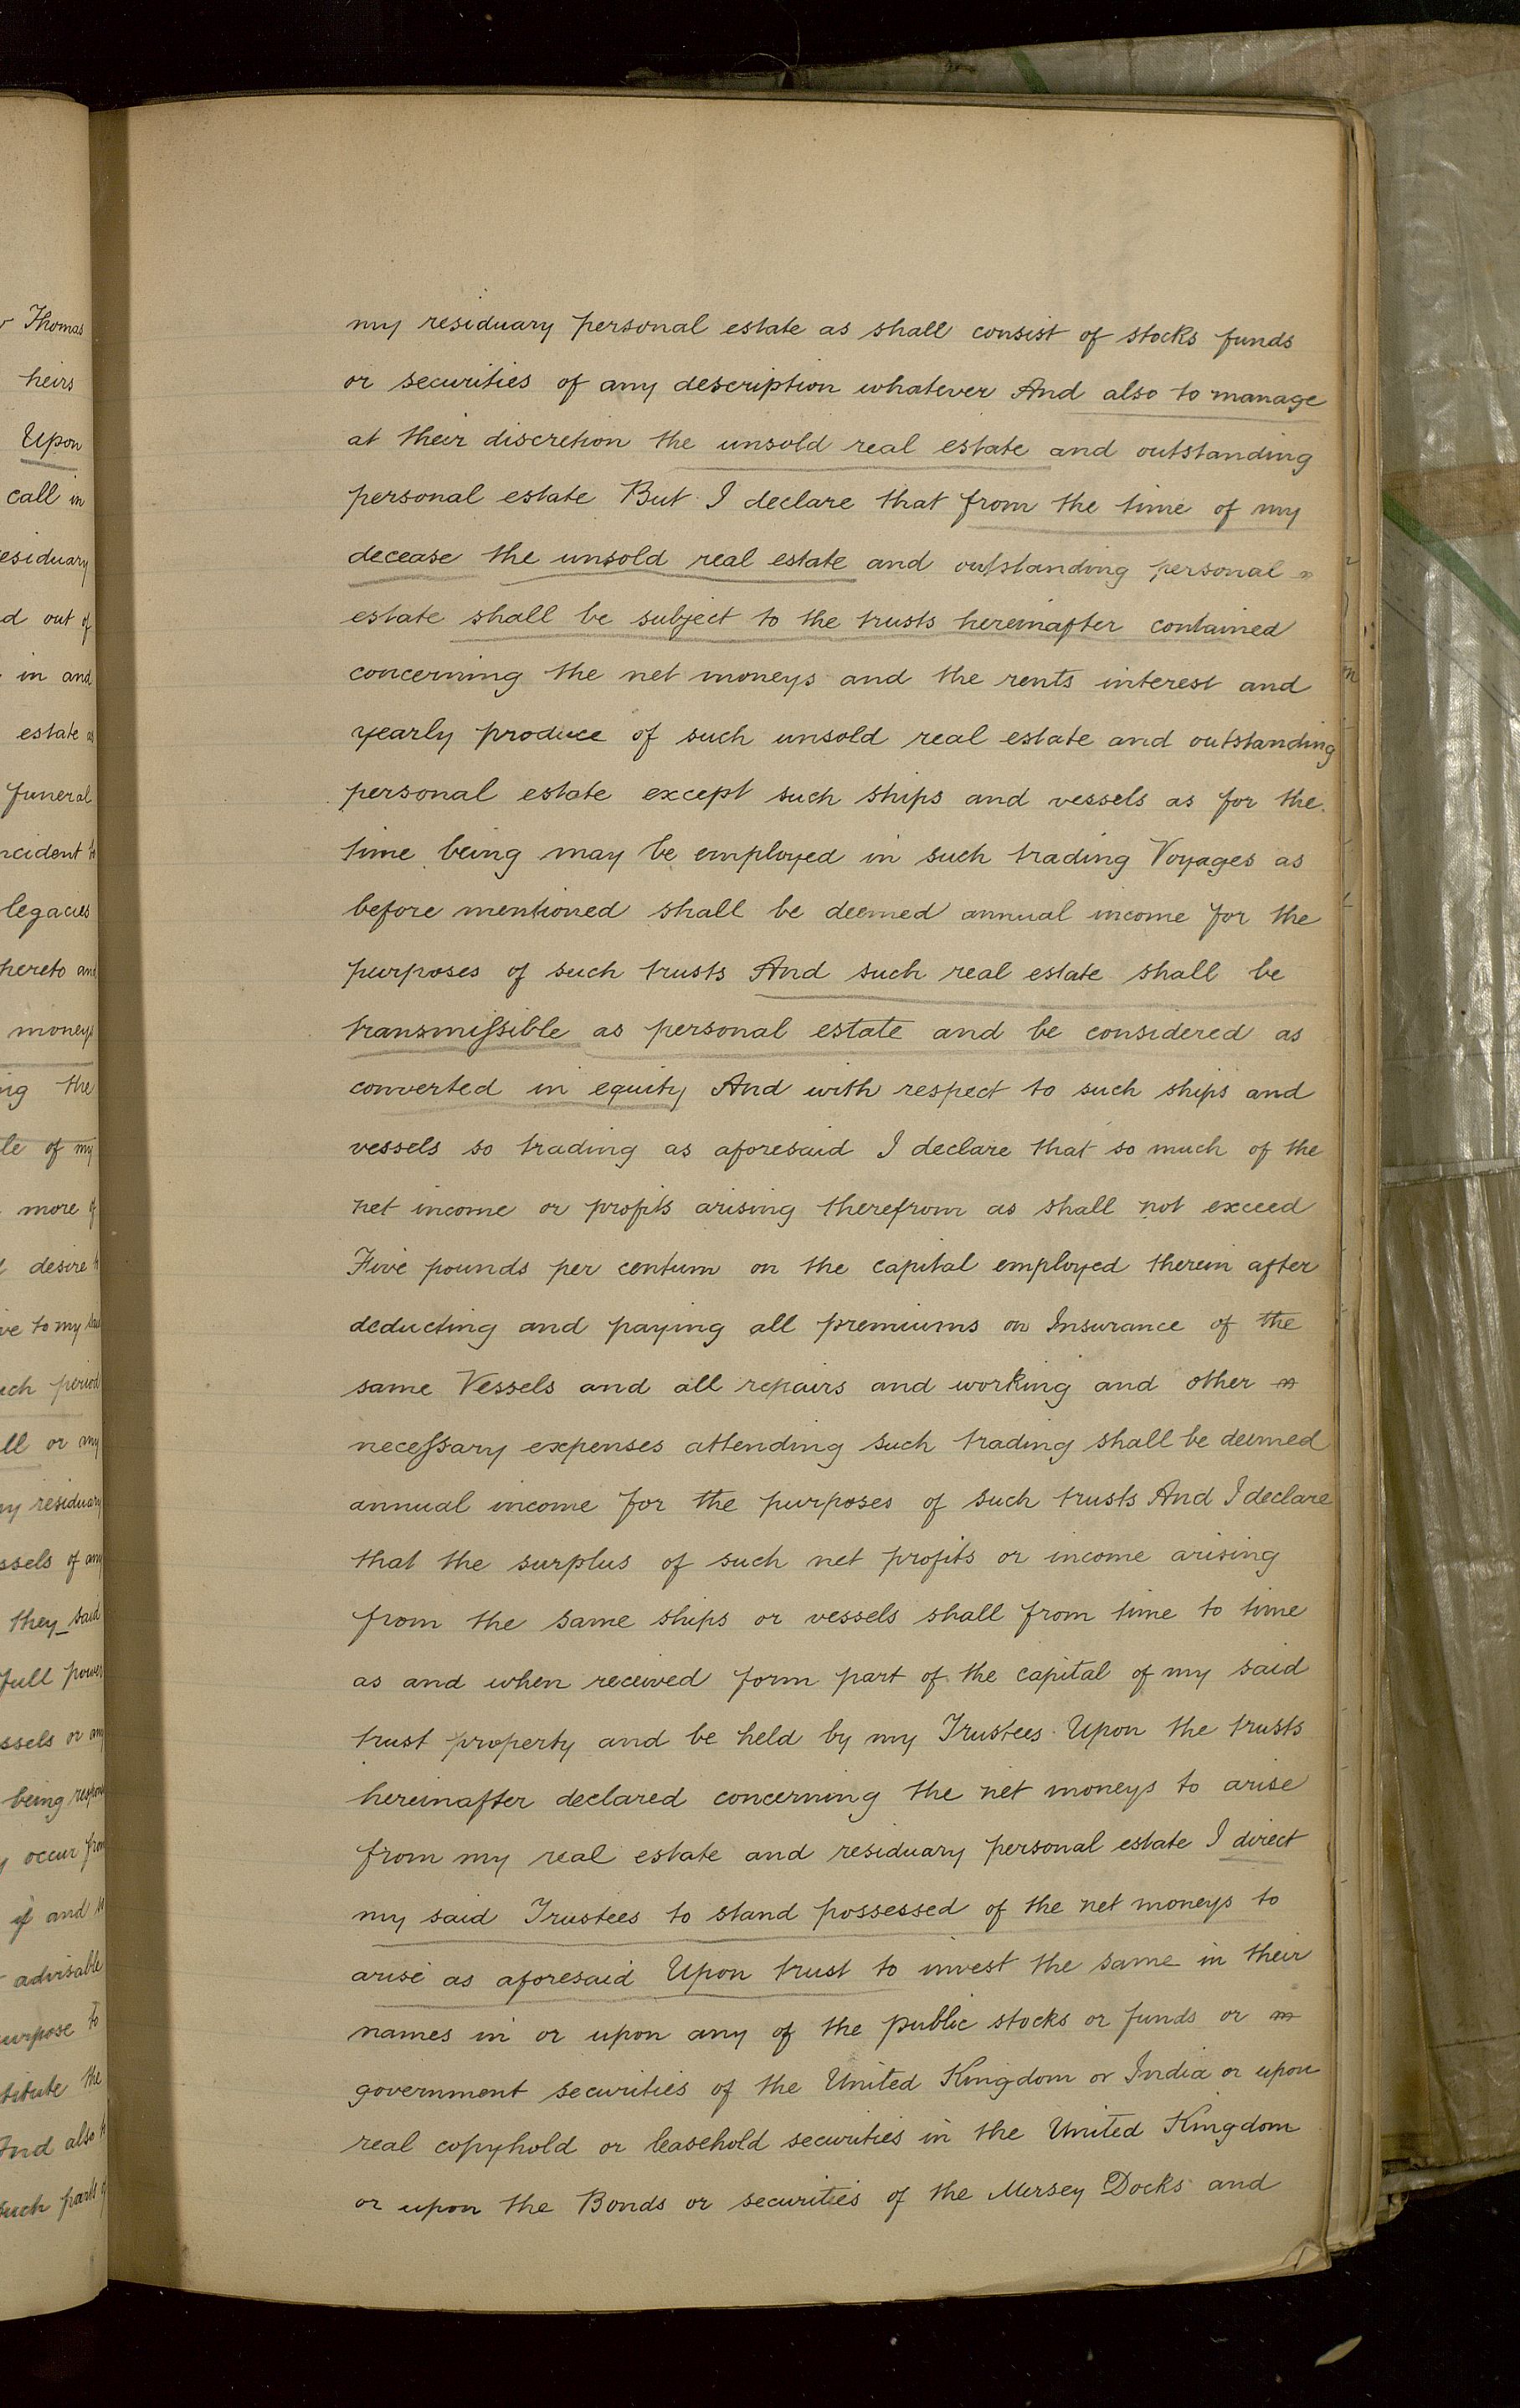 Thomas
heirs
Upon
call in
esiduary
d out of
in and
estate as
funeral
ncident to
legacies
hereto and
moneys
ng the
le of my
more of
desire to
ve to my
uch period
ll or any
my residuary
ssels of any
they said
full power
ssels or any
being respon
occur from
if and
advisable
urpose to
titute the
And also to
such parts of
my residuary personal estate as shall consist of stocks funds
or securities of any description whatever And also to manage
at their discretion the unsold real estate and outstanding
personal estate But I declare that from the time of my
decease the unsold real estate and outstanding personal
estate shall be subject to the trusts hereinafter contained
concerning the net moneys and the rents interest and
yearly produce of such unsold real estate and outstanding
personal estate except such ships and vessels as for the
time being may be employed in such trading Voyages as
before mentioned shall be deemed annual income for the
purposes of such trusts And such real estate shall be
transmissible as personal estate and be considered as
converted in equity And with respect to such ships and
vessels so trading as aforesaid I declare that so much of the
net income or profits arising therefrom as shall not exceed
Five pounds per centum on the capital employed therein after
deducting and paying all premiums on Insurance of the
same Vessels and all repairs and working and other
necessary expenses attending such trading shall be deemed
annual income for the purposes of such trusts And I declare
that the surplus of such net profits or income arising
from the same ships or vessels shall from time to time
as and when received form part of the capital of my said
trust property and be held by my Trustees Upon the trusts
hereinafter declared concerning the net moneys to arise
from my real estate and residuary personal estate I direct
my said Trustees to stand possessed of the net moneys to
arise as aforesaid Upon trust to invest the same in their
names in or upon any of the public stocks or funds or
government securities of the United Kingdom or India or upon
real copyhold or leasehold securities in the United Kingdom
or upon the Bonds or securities of the Mersey Docks and